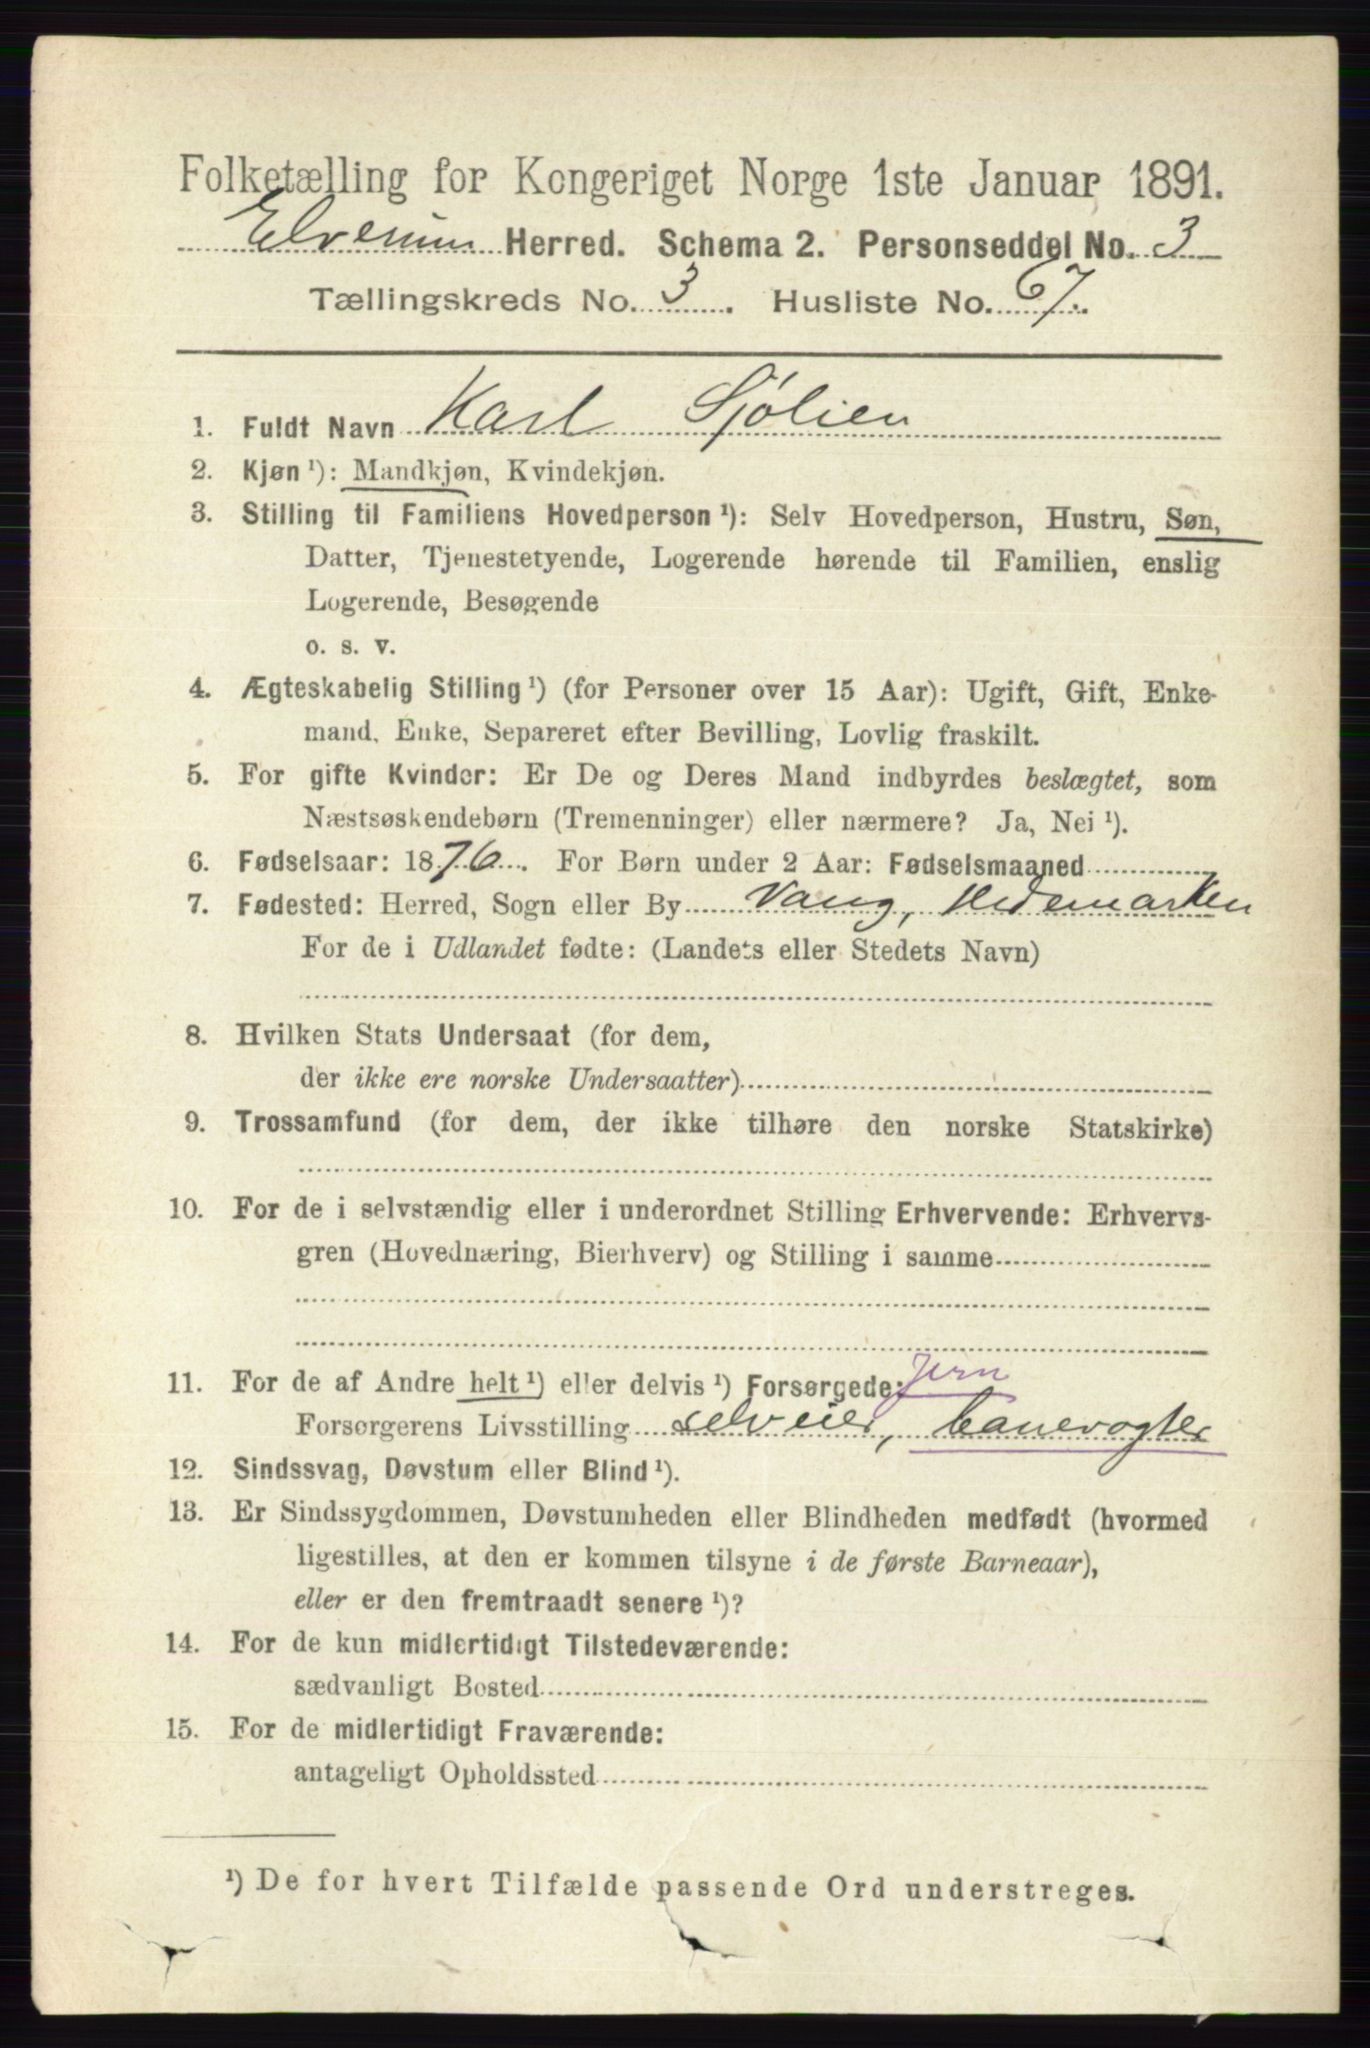 Folketælling for Kongeriget Norge 1ste Januar 1891.
Elverum Herred. Schema 2. Personseddel No. 3
Tællingskreds No. 3. Husliste No. 67.
1. Fuldt Navn Karl Sjølien
2. Kjøn ¹): Mandkjøn, Kvindekjøn.
3. Stilling til Familiens Hovedperson ¹): Selv Hovedperson, Hustru, Søn,
Datter, Tjenestetyende, Logerende hørende til Familien, enslig
Logerende, Besøgende
o. s. v.
4. Ægteskabelig Stilling ¹) (for Personer over 15 Aar): Ugift, Gift, Enke-
mand, Enke, Separeret efter Bevilling, Lovlig fraskilt.
5. For gifte Kvinder: Er De og Deres Mand indbyrdes beslægtet, som
Næstsøskendebørn (Tremenninger) eller nærmere? Ja, Nei ¹).
6. Fødselsaar: 1876. For Børn under 2 Aar: Fødselsmaaned
7. Fødested: Herred, Sogn eller By Vang, Hedemarken
For de i Udlandet fødte: (Landets eller Stedets Navn)
8. Hvilken Stats Undersaat (for dem,
der ikke ere norske Undersaatter)
9. Trossamfund (for dem, der ikke tilhøre den norske Statskirke)
10. For de i selvstændig eller i underordnet Stilling Erhvervende: Erhvervs-
gren (Hovednæring, Bierhverv) og Stilling i samme
11. For de af Andre helt ¹) eller delvis ¹) Forsørgede: Jern
Forsørgerens Livsstilling selveier, banevogter
12. Sindssvag, Døvstum eller Blind ¹).
13. Er Sindssygdommen, Døvstumheden eller Blindheden medfødt (hvormed
ligestilles, at den er kommen tilsyne i de første Barneaar),
eller er den fremtraadt senere ¹)?
14. For de kun midlertidigt Tilstedeværende:
sædvanligt Bosted
15. For de midlertidigt Fraværende:
antageligt Opholdssted
¹) De for hvert Tilfælde passende Ord understreges.